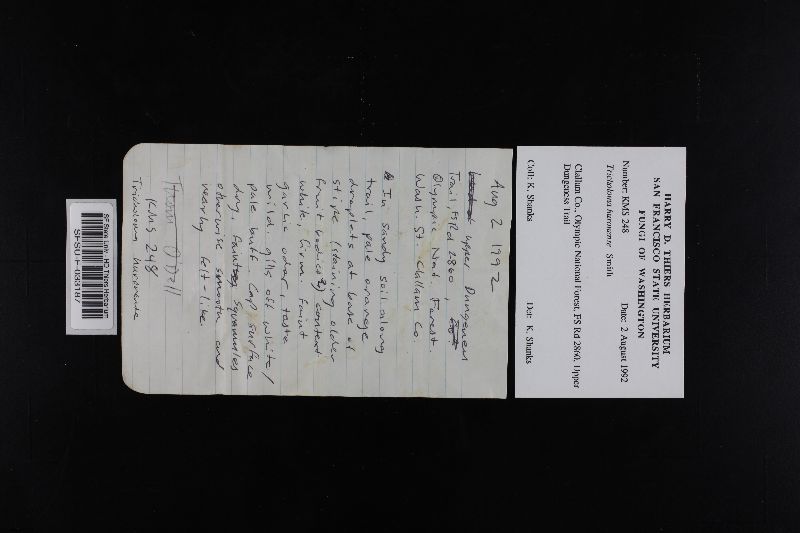 HARRY D. THIERS HERBARIUM
SAN FRANCISCO STATE UNIVERSITY
FUNGI OF WASHINGTON
Number: KMS 248 Date: 2 August 1992
Smith
Clallam Co., Olympic National Forest, FS Rd 2860, Upper
Dungeness Trail
Coll: K. Shanks Det: K. Shanks
Aug 2 1992
upper Dungeness
Trail, FS Rd 2860,
Olympic Nat. Forest.
Wash. St. Clallam Co
In sandy soil along
trail, pale orange
droplets at base of
stipe (staining older
fruit bodies) context
white, firm. faint
garlic odor, taste
mild, gills off white/
pale buff. Cap surface
dry, faint squamules
otherwise smooth and
nearby felt-like
Thom O'Dell
KMS 248
Tricholoma
SF State Univ. HD Thiers Herbarium
SFSU-F-033187